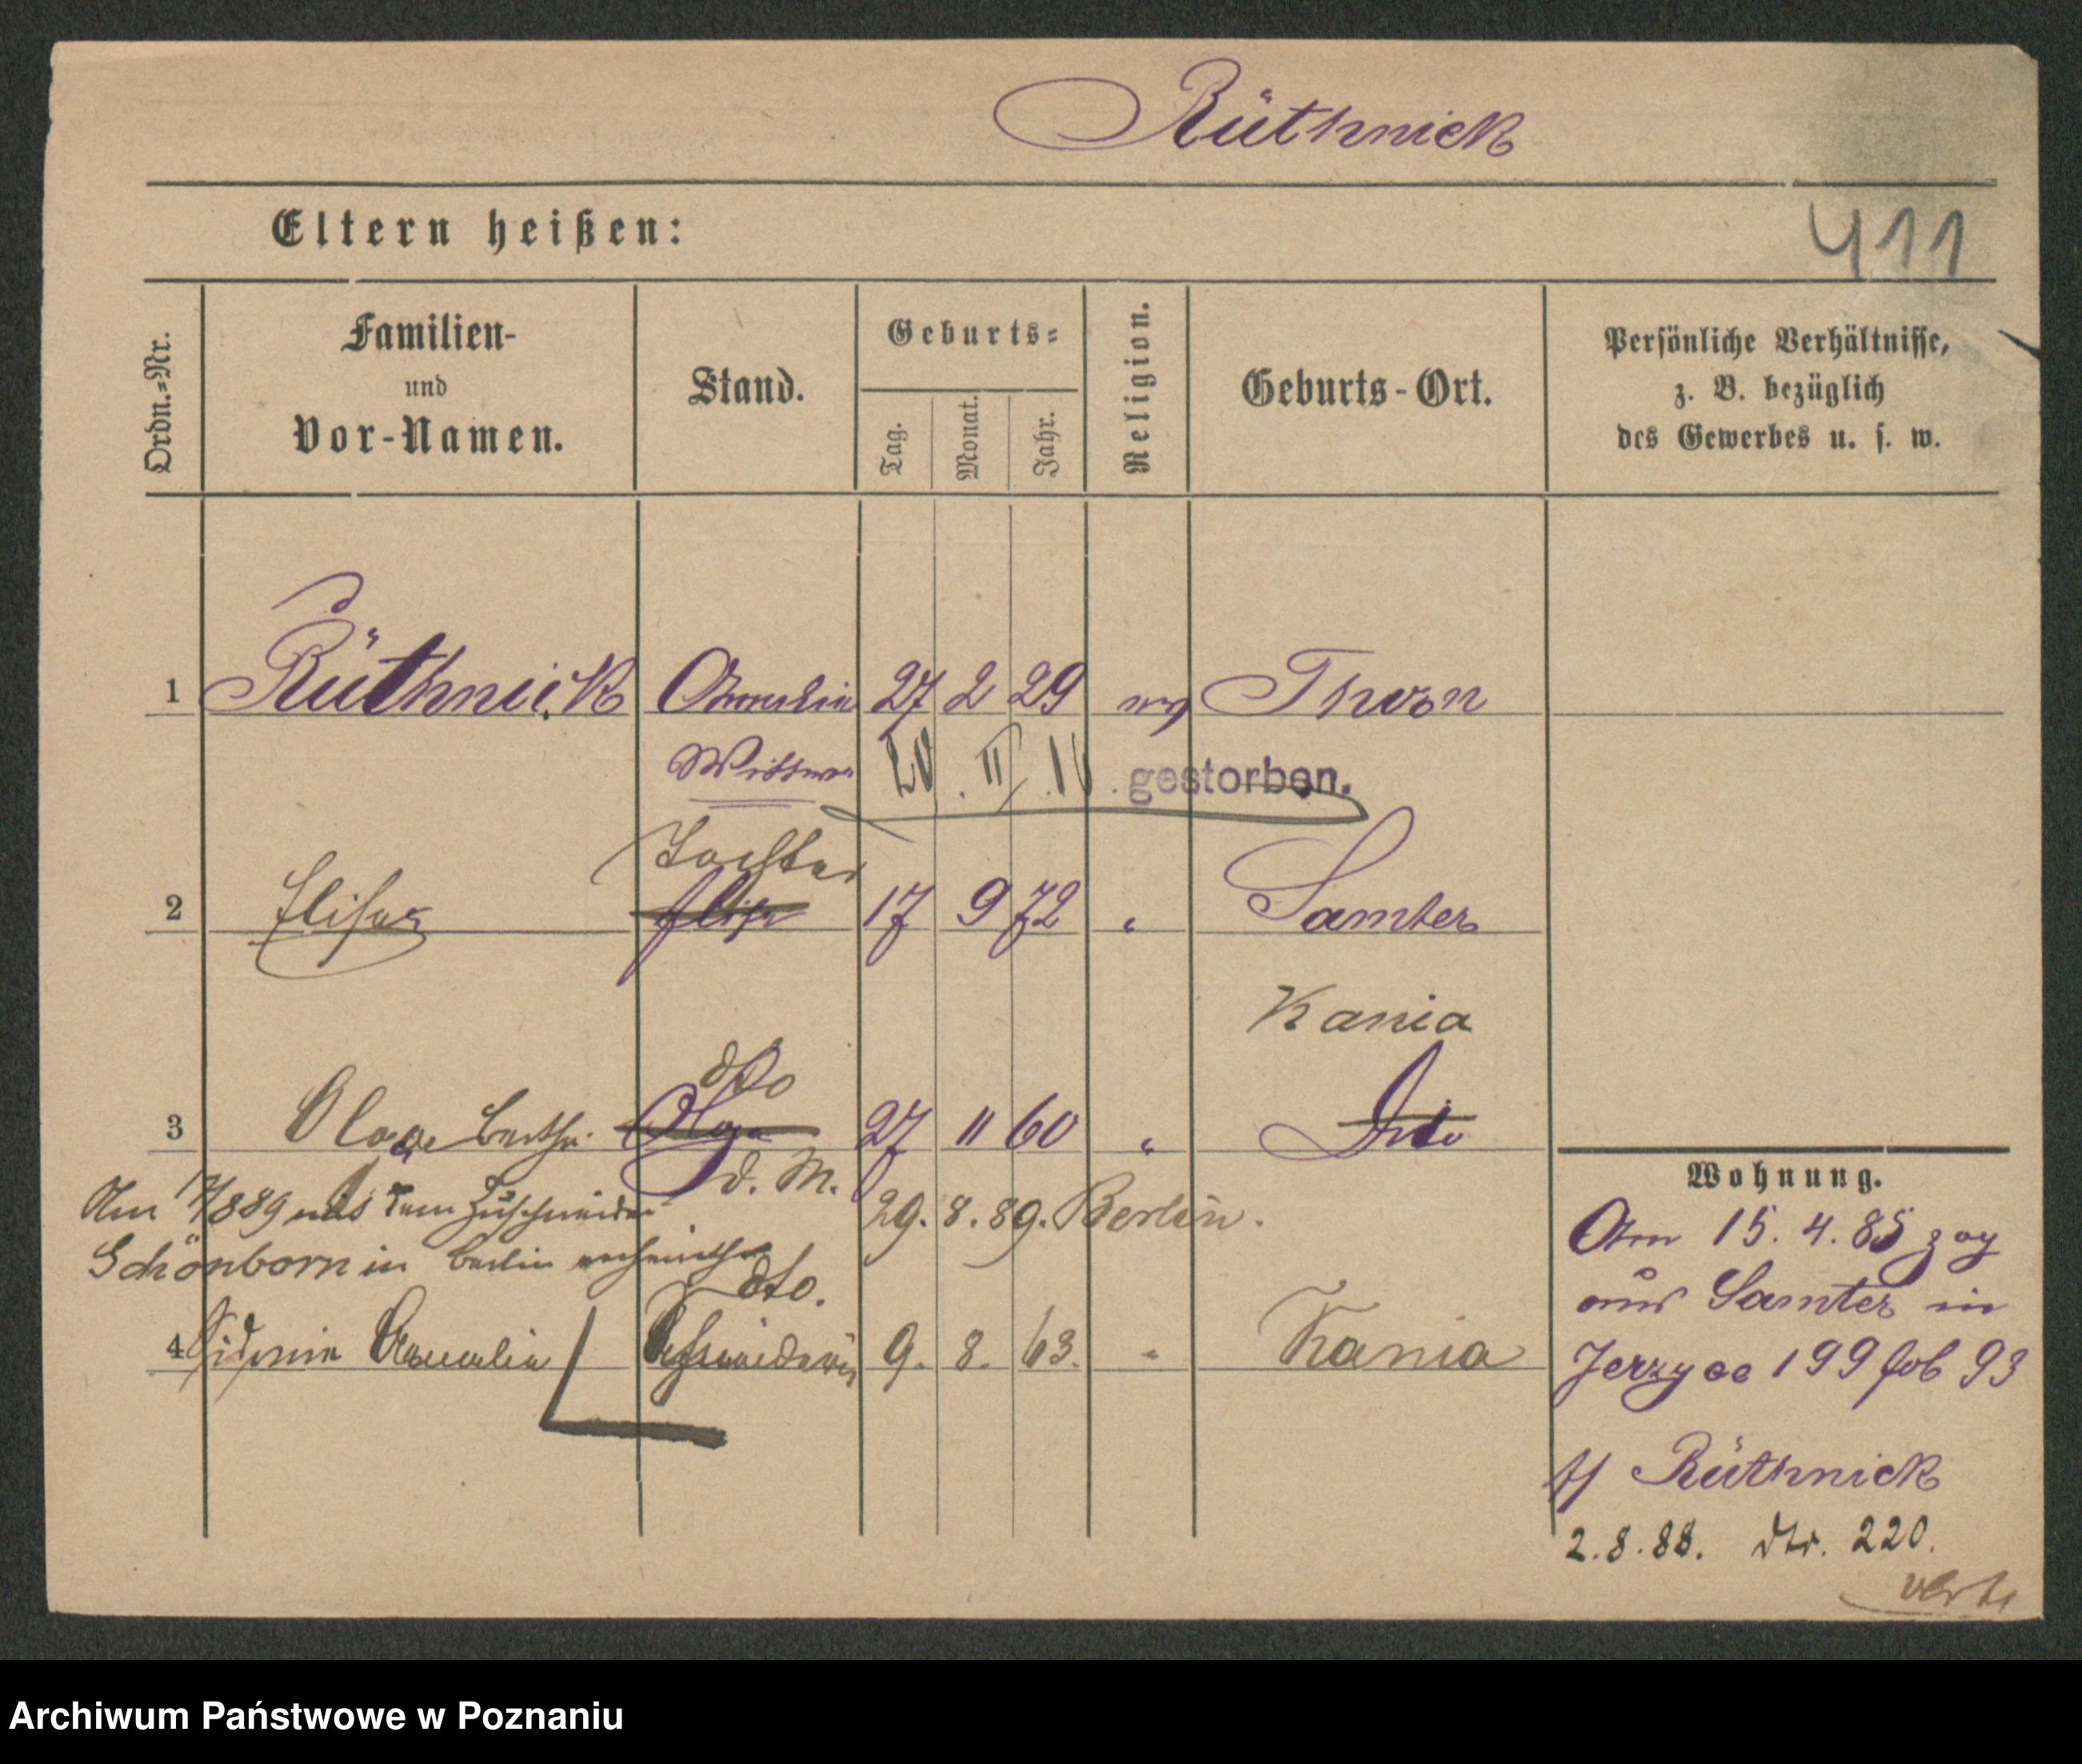 Rüthnick
Eltern heißen:
411
Ordn.=Nr.
Familien-
und
Vor-Namen.
Stand.
Geburts=
Tag.
Monat.
Jahr.
Religion.
Geburts-Ort.
Persönliche Verhältnisse,
z. B. bezüglich
des Gewerbes u. s. w.
1 Rüthnick Amalia 27 2 29 Thorn
Wittwe 20. II 16. gestorben.
Tochter
2 Elise Elise 17 9 72 " Samter
Kania
dto
3 Olga Bertha Olga 27 11 60 " Dito
d. M.
Am 17/8 89 mit dem Zuschneider 29. 8. 89. Berlin.
Schönborn in Berlin verheirathet
dto.
4 Sidonie Amalia Schneiderin 9. 8. 63. " Kania
Wohnung.
Am 15. 4. 85 zog
aus Samter in
Jerzyce 199 fol 93
Rüthnick
2. 8. 88. 220.
verte
Archiwum Państwowe w Poznaniu